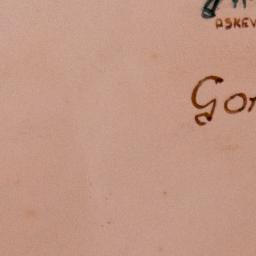 ASKEV
Gor